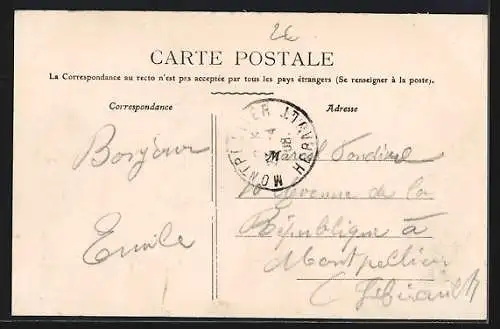 2€
CARTE POSTALE
La Correspondance au recto n'est pas acceptée par tous les pays étrangers (Se renseigner à la poste).
Correspondance
Adresse
MONTPELLIER HÉRAULT
Bonjour
Emile
M
Marcel
Avenue de la
République à
Montpellier
(Hérault)